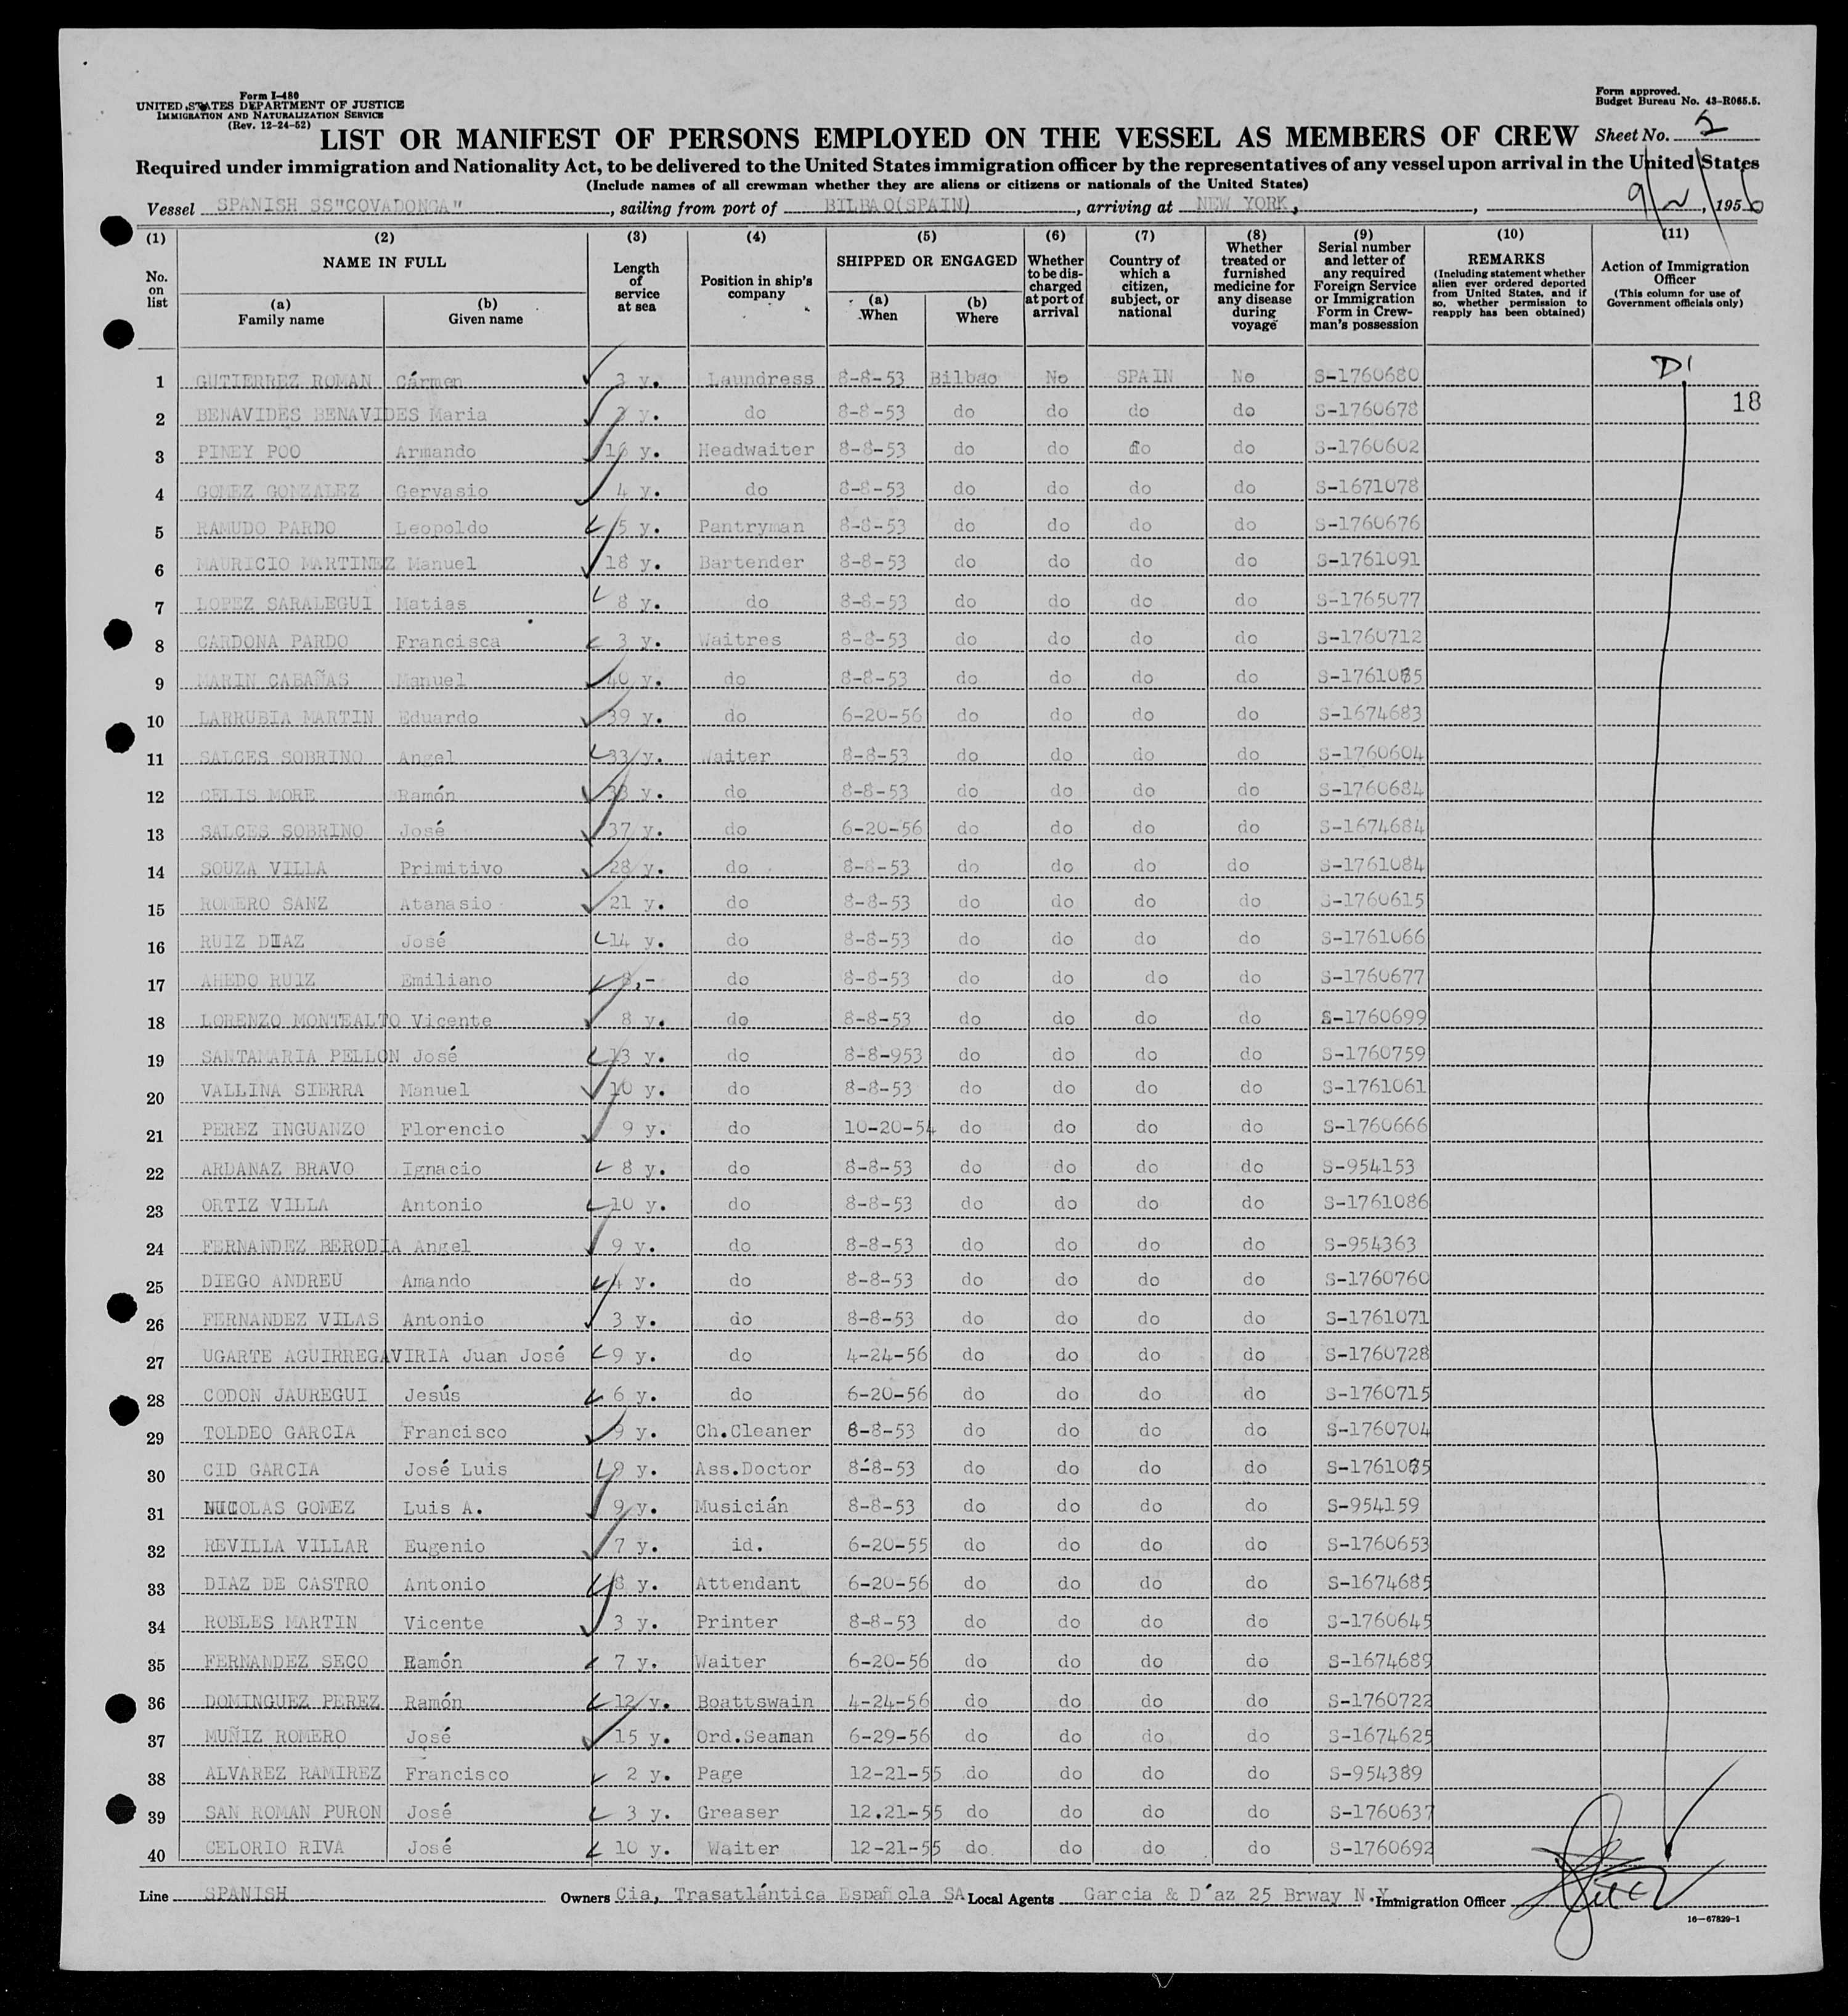 Form I-480
UNITED STATES DEPARTMENT OF JUSTICE
IMMIGRATION AND NATURALIZATION SERVICE
(Rev. 12-24-52)
Form approved.
Budget Bureau No. 43-R065.5.
LIST OR MANIFEST OF PERSONS EMPLOYED ON THE VESSEL AS MEMBERS OF CREW Sheet No. 2
Required under immigration and Nationality Act, to be delivered to the United States immigration officer by the representatives of any vessel upon arrival in the United States
(Include names of all crewman whether they are aliens or citizens or nationals of the United States)
Vessel SPANISH SS"COVADONGA", sailing from port of BILBAO(SPAIN), arriving at NEW YORK, 9/2/, 1956
(1) No. on list
(2) NAME IN FULL (a) Family name (b) Given name
(3) Length of service at sea
(4) Position in ship's company
(5) SHIPPED OR ENGAGED (a) When (b) Where
(6) Whether to be discharged at port of arrival
(7) Country of which a citizen, subject, or national
(8) Whether treated or furnished medicine for any disease during voyage
(9) Serial number and letter of any required Foreign Service or Immigration Form in Crewman's possession
(10) REMARKS (Including statement whether alien ever ordered deported from United States, and if so, whether permission to reapply has been obtained)
(11) Action of Immigration Officer (This column for use of Government officials only)
1 GUTIERREZ ROMAN Cármen 3 y. Laundress 8-8-53 Bilbao No SPAIN No S-1760680 D1
2 BENAVIDES BENAVIDES Maria 3 y. do 8-8-53 do do do do S-1760678 18
3 PINEY POO Armando 16 y. Headwaiter 8-8-53 do do do do S-1760602
4 GOMEZ GONZALEZ Gervasio 4 y. do 8-8-53 do do do do S-1671078
5 RAMUDO PARDO Leopoldo 5 y. Pantryman 8-8-53 do do do do S-1760676
6 MAURICIO MARTINEZ Manuel 18 y. Bartender 8-8-53 do do do do S-1761091
7 LOPEZ SARALEGUI Matias 8 y. do 8-8-53 do do do do S-1765077
8 CARDONA PARDO Francisca 3 y. Waitres 8-8-53 do do do do S-1760712
9 MARIN CABAÑAS Manuel 40 y. do 8-8-53 do do do do S-1761085
10 LARRUBIA MARTIN Eduardo 39 y. do 6-20-56 do do do do S-1674683
11 SALCES SOBRINO Angel 33 y. Waiter 8-8-53 do do do do S-1760604
12 CELIS MORE Ramón 38 y. do 8-8-53 do do do do S-1760684
13 SALCES SOBRINO José 37 y. do 6-20-56 do do do do S-1674684
14 SOUZA VILLA Primitivo 28 y. do 8-8-53 do do do do S-1761084
15 ROMERO SANZ Atanasio 21 y. do 8-8-53 do do do do S-1760615
16 RUIZ DIAZ José 14 y. do 8-8-53 do do do do S-1761066
17 AHEDO RUIZ Emiliano do 8-8-53 do do do do S-1760677
18 LORENZO MONTEALTO Vicente 8 y. do 8-8-53 do do do do S-1760699
19 SANTAMARIA PELLON José 13 y. do 8-8-953 do do do do S-1760759
20 VALLINA SIERRA Manuel 10 y. do 8-8-53 do do do do S-1761061
21 PEREZ INGUANZO Florencio 9 y. do 10-20-54 do do do do S-1760666
22 ARDANAZ BRAVO Ignacio 8 y. do 8-8-53 do do do do S-954153
23 ORTIZ VILLA Antonio 10 y. do 8-8-53 do do do do S-1761086
24 FERNANDEZ BERODIA Angel 9 y. do 8-8-53 do do do do S-954363
25 DIEGO ANDREU Amando 4 y. do 8-8-53 do do do do S-1760760
26 FERNANDEZ VILAS Antonio 3 y. do 8-8-53 do do do do S-1761071
27 UGARTE AGUIRREGAVIRIA Juan José 9 y. do 4-24-56 do do do do S-1760728
28 CODON JAUREGUI Jesús 6 y. do 6-20-56 do do do do S-1760715
29 TOLDEO GARCIA Francisco 9 y. Ch.Cleaner 8-8-53 do do do do S-1760704
30 CID GARCIA José Luis 9 y. Ass.Doctor 8-8-53 do do do do S-1761085
31 NICOLAS GOMEZ Luis A. 9 y. Musicián 8-8-53 do do do do S-954159
32 REVILLA VILLAR Eugenio 7 y. id. 6-20-55 do do do do S-1760653
33 DIAZ DE CASTRO Antonio 8 y. Attendant 6-20-56 do do do do S-1674685
34 ROBLES MARTIN Vicente 3 y. Printer 8-8-53 do do do do S-1760645
35 FERNANDEZ SECO Ramón 7 y. Waiter 6-20-56 do do do do S-1674689
36 DOMINGUEZ PEREZ Ramón 12 y. Boattswain 4-24-56 do do do do S-1760722
37 MUÑIZ ROMERO José 15 y. Ord.Seaman 6-29-56 do do do do S-1674625
38 ALVAREZ RAMIREZ Francisco 2 y. Page 12-21-55 do do do do S-954389
39 SAN ROMAN PURON José 3 y. Greaser 12.21-55 do do do do S-1760637
40 CELORIO RIVA José 10 y. Waiter 12-21-55 do do do do S-1760692
Line SPANISH Owners Cia, Trasatlántica Española SA Local Agents Garcia & D´az 25 Brway N.Y. Immigration Officer
16-67829-1